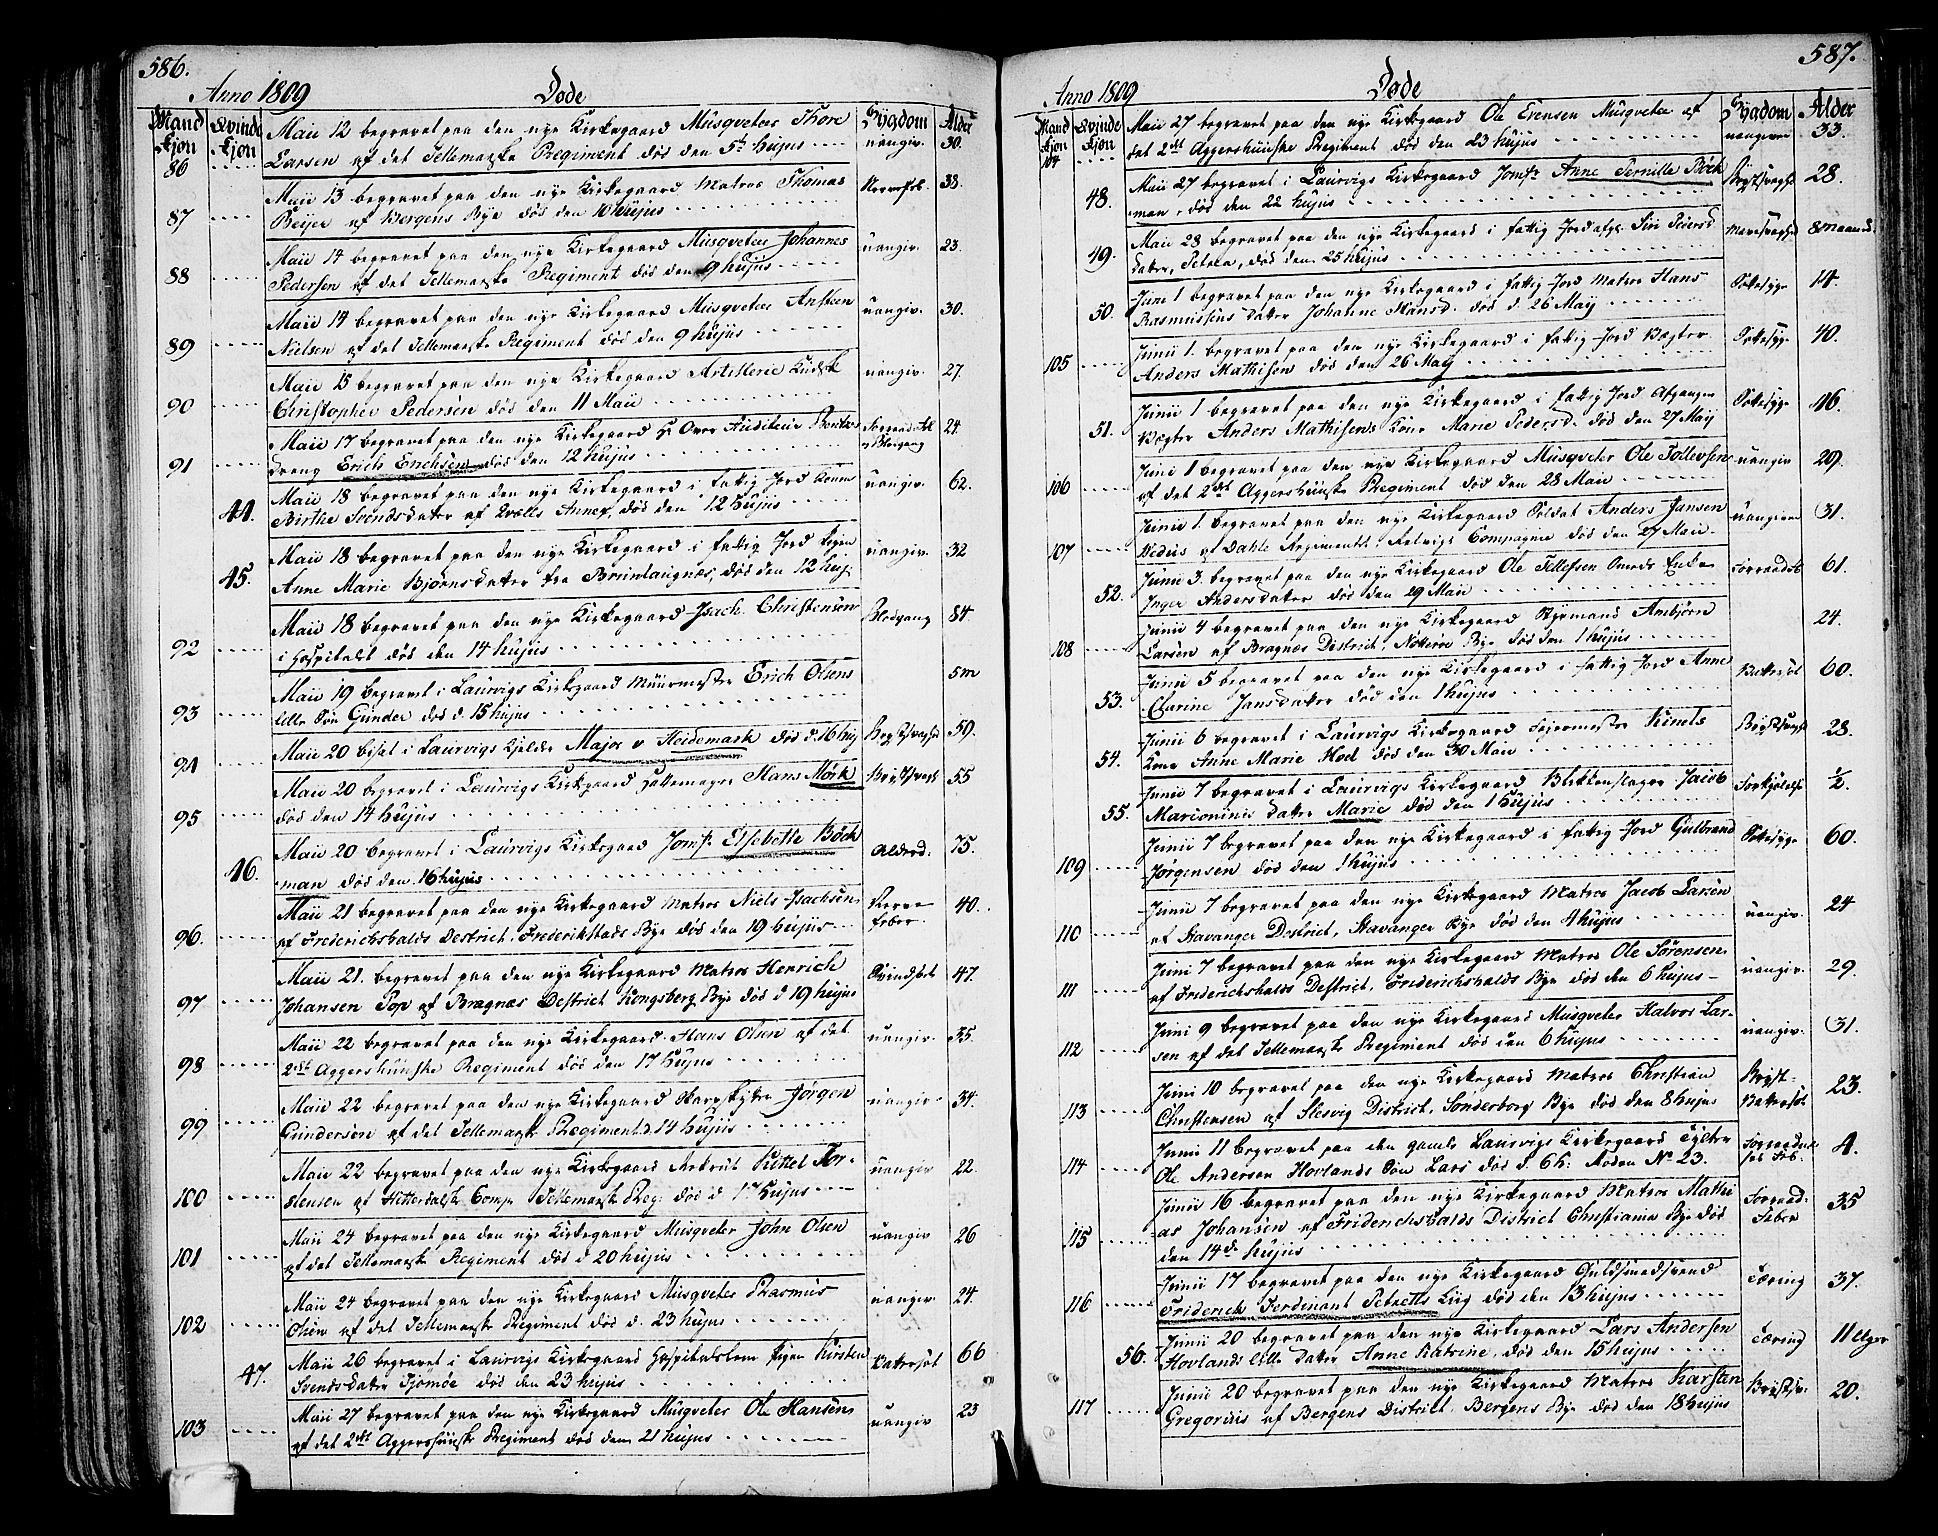 586.
Anno 1809 Døde
Mand Kjøn Qvinde Kjøn Sygdom Alder
86 Maii 12 begravet paa den nye Kirkegaard Musqveteer Thore uangiv. 30.
Larsen af det Tellemarkske Regiment død den 5te hujus
87 Maii 13 begravet paa den nye Kirkegaard Matros Thomas 38.
Beyer af Bergens Bye død den 10 hujus
88 Maii 14 begravet paa den nye Kirkegaard Musqveteer Johannes uangiv. 23.
Pedersen af det Tellemarkske Regiment død den 9 hujus
89 Maii 14 begravet paa den nye Kirkegaard Musqveteer Ansteen uangiv. 30.
Nielsen af det Tellemarkske Regiment død den 9 hujus
90 Maii 15 begravet paa den nye Kirkegaard Artillerie Kudsk uangiv. 27.
Christopher Pedersen død den 11 Maii
91 Maii 17 begravet paa den nye Kirkegaard Hr Over Auditeur 24.
Dreng Erich Erichsen død den 12 hujus
44. Maii 18 begravet paa den nye Kirkegaard i fattig Jord Konen uangiv. 62.
Birthe Svendsdatter af Annex, død den 12 hujus
45. Maii 18 begravet paa den nye Kirkegaard i fattig Jord Pigen uangiv. 32
Anne Marie Bjørnsdatter fra Brunlaugnæs, død den 12 huj.
92 Maii 18 begravet paa den nye Kirkegaard Isach Christensen Blodgang 84.
i Hospitalet død den 14 hujus
93 Maii 19 begravet i Laurvigs Kirkegaard Muurmester Erich Olsens 5 m
lille Søn Gunder død d. 15 hujus
94 Maii 20 bisat i Laurvigs Kjelder Major v Heidemark død d. 16 huj Brystsvaghed 59.
95 Maii 20 begravet i Laurvigs Kirkegaard Hattemager Hans Mørk Brystsvagh 55
død den 14 hujus
46. Maii 20 begravet i Laurvigs Kirkegaard Jomfr. Elsebethe Böck Alderd. 75.
man død den 16 hujus
96. Maii 21 begravet paa den nye Kirkegaard Matros Niels Isachsen Nerve 40.
af Frederichshalds Destrict, Frederikstads Bye død den 19 hujus Feber
97 Maii 21. begravet paa den nye Kirkegaard Matros Henrich 47.
Johansen Top af Bragnæs Destrict Kongsberg Bye død d 19 hujus
98 Maii 22 begravet paa den nye Kirkegaard Hans Olsen af det uangiv. 35.
2det Aggershuuske Regiment død den 17 hujus
99 Maii 22 begravet paa den nye Kirkegaard Skarpskytter Jørgen uangiv 34.
Gundersen af det Tellemarksk Regiment d. 14 hujus
100 Maii 22 begravet paa den nye Kirkegaard Rekrut Kittel Tor- uangiv 22.
stensen af Hitterdalske Comp. Tellemarksk Reg: død d 17 hujus
101 Maii 24 begravet paa den nye Kirkegaard Musqveter John Olsen uangiv 26
af det Tellemarksk Regiment død d 20 hujus
102 Maii 24 begravet paa den nye Kirkegaard Musqveter Rasmus uangiv. 24.
Olsen af det Tellemarkske Regiment død d. 23 hujus
47. Maii 26 begravet i Laurvigs Kirkegaard Hospitalslem Pigen Kirsten 66
Svendsdatter Tjømøe død den 23 hujus
103 Maii 27 begravet paa den nye Kirkegaard Musqveter Ole Hansen uangiv 23
af det 2det Aggershuuske Regiment død den 21 hujus
587.
Anno 1809 Døde
Mand Kjøn Qvinde Kjøn Sygdom Alder
104 Maii 27 begravet paa den nye Kirkegaard Ole Evensen Musqveteer af uangiven 33.
det 2det Aggershuuske Regiment død den 23 hujus
48. Maii 27 begravet i Laurvigs Kirkegaard Jomfr. Anne Pernille Böck Brystsvaghed 28.
man, død den 22 hujus
49. Maii 28 begravet paa den nye Kirkegaard i fattig Jord Siri Peiersd 8 maaned.
datter, Petrea, død den 25 hujus
50. Juni 1 begravet paa den nye Kirkegaard i fattig Jord Matros Hans 14.
Rasmussens Datter Johanne Hansd. død d. 26 Maij
105 Junii 1. begravet paa den nye Kirkegaard i fattig Jord Vægter 40.
Anders Mathisen død den 26 Maij
51. Junii 1 begravet paa den nye Kirkegaard i fattig Jord Afgangen 46.
Vægter Anders Mathisens Kone Marie Pedersd. død den 27 Maij
106 Juni 1 begravet paa den nye Kirkegaard Musqveter Ole Tollevsen uangiv 29.
af det 2det Aggershuuske Regiment død den 28 Maii
107 Junii 1. begravet paa den nye Kirkegaard Soldat Anders Jansen uangiven 31.
af Dahls Regiment, Compagnie død den 27 Maii
52. Junii 3 begravet paa den nye Kirkegaard Ole Tellefsen Enke 61.
Inger Andersdatter død den 29 Maii
108 Junii 4 begravet paa den nye Kirkegaard Styrmand Ambjørn 24.
Larsen af Bragnæs District, Nøtterøe Bye død den 1 hujus
53. Junii 5 begravet paa den nye Kirkegaard i fattig Jord Anne 60.
Clarine Jansdatter død den 1 hujus
54. Junii 6 begravet i Laurvigs Kirkegaard Feiermester Kinels Brystsvagh 28.
Kone Anne Marie Hod død den 30 Maii
55. Junii 7 begravet i Laurvigs Kirkegaard Blikkenslager Jacob Forkjølelse ½.
Marioninis datter Marie død den 1 hujus
109 Junii 7 begravet paa den nye Kirkegaard i fattig Jord Gulbrand 60.
Jørgensen død den 1 hujus
110 Junii 7 begravet paa den nye Kirkegaard Matros Jacob Larsen uangiv. 24
af Stavanger Destrict, Stavanger Bye død den 4 hujus
111 Juni 7 begravet paa den nye Kirkegaard Matros Ole Sørensen uangiv. 29.
af Friderichshalds Destrict, Friderichshalds Bye død den 6 hujus
112 Juni 9 begravet paa den nye Kirkegaard Musqveter Halvor Lar- uangiv. 31.
sen af det Tellemarsk Regiment død den 6 hujus
113 Juni 10 begravet paa den nye Kirkegaard Matros Christian Bryst- 23.
Christensen af Slesvig District, Sonderborg Bye død den 8 hujus
114 Junii 11 begravet paa den gamle Laurvigs Kirkegaard 4.
Ole Andersen Hovlands Søn Lars død d. 6 h: Roden No 23.
115 Junii 16 begravet paa den nye Kirkegaard Matros Mathi Forraad- 35
as Johansen af Friderichshalds District Christiania Bye død Feber
den 14de hujus
116 Junii 17 begravet paa den nye Kirkegaard Guldsmedsvend Tæring 37.
Friderich Ferdinant Petretts Liig død den 13 hujus
56. Junii 20 begravet paa den nye Kirkegaard Lars Andersen Tæring 11 Uger
Hovlands lille Datter Anne Katrine, død den 15 hujus
117 Junii 20 begravet paa den nye Kirkegaard Matros Karsten Brystsv. 20.
Gregoriis af Bergens District Bergens Bye død den 18 hujus